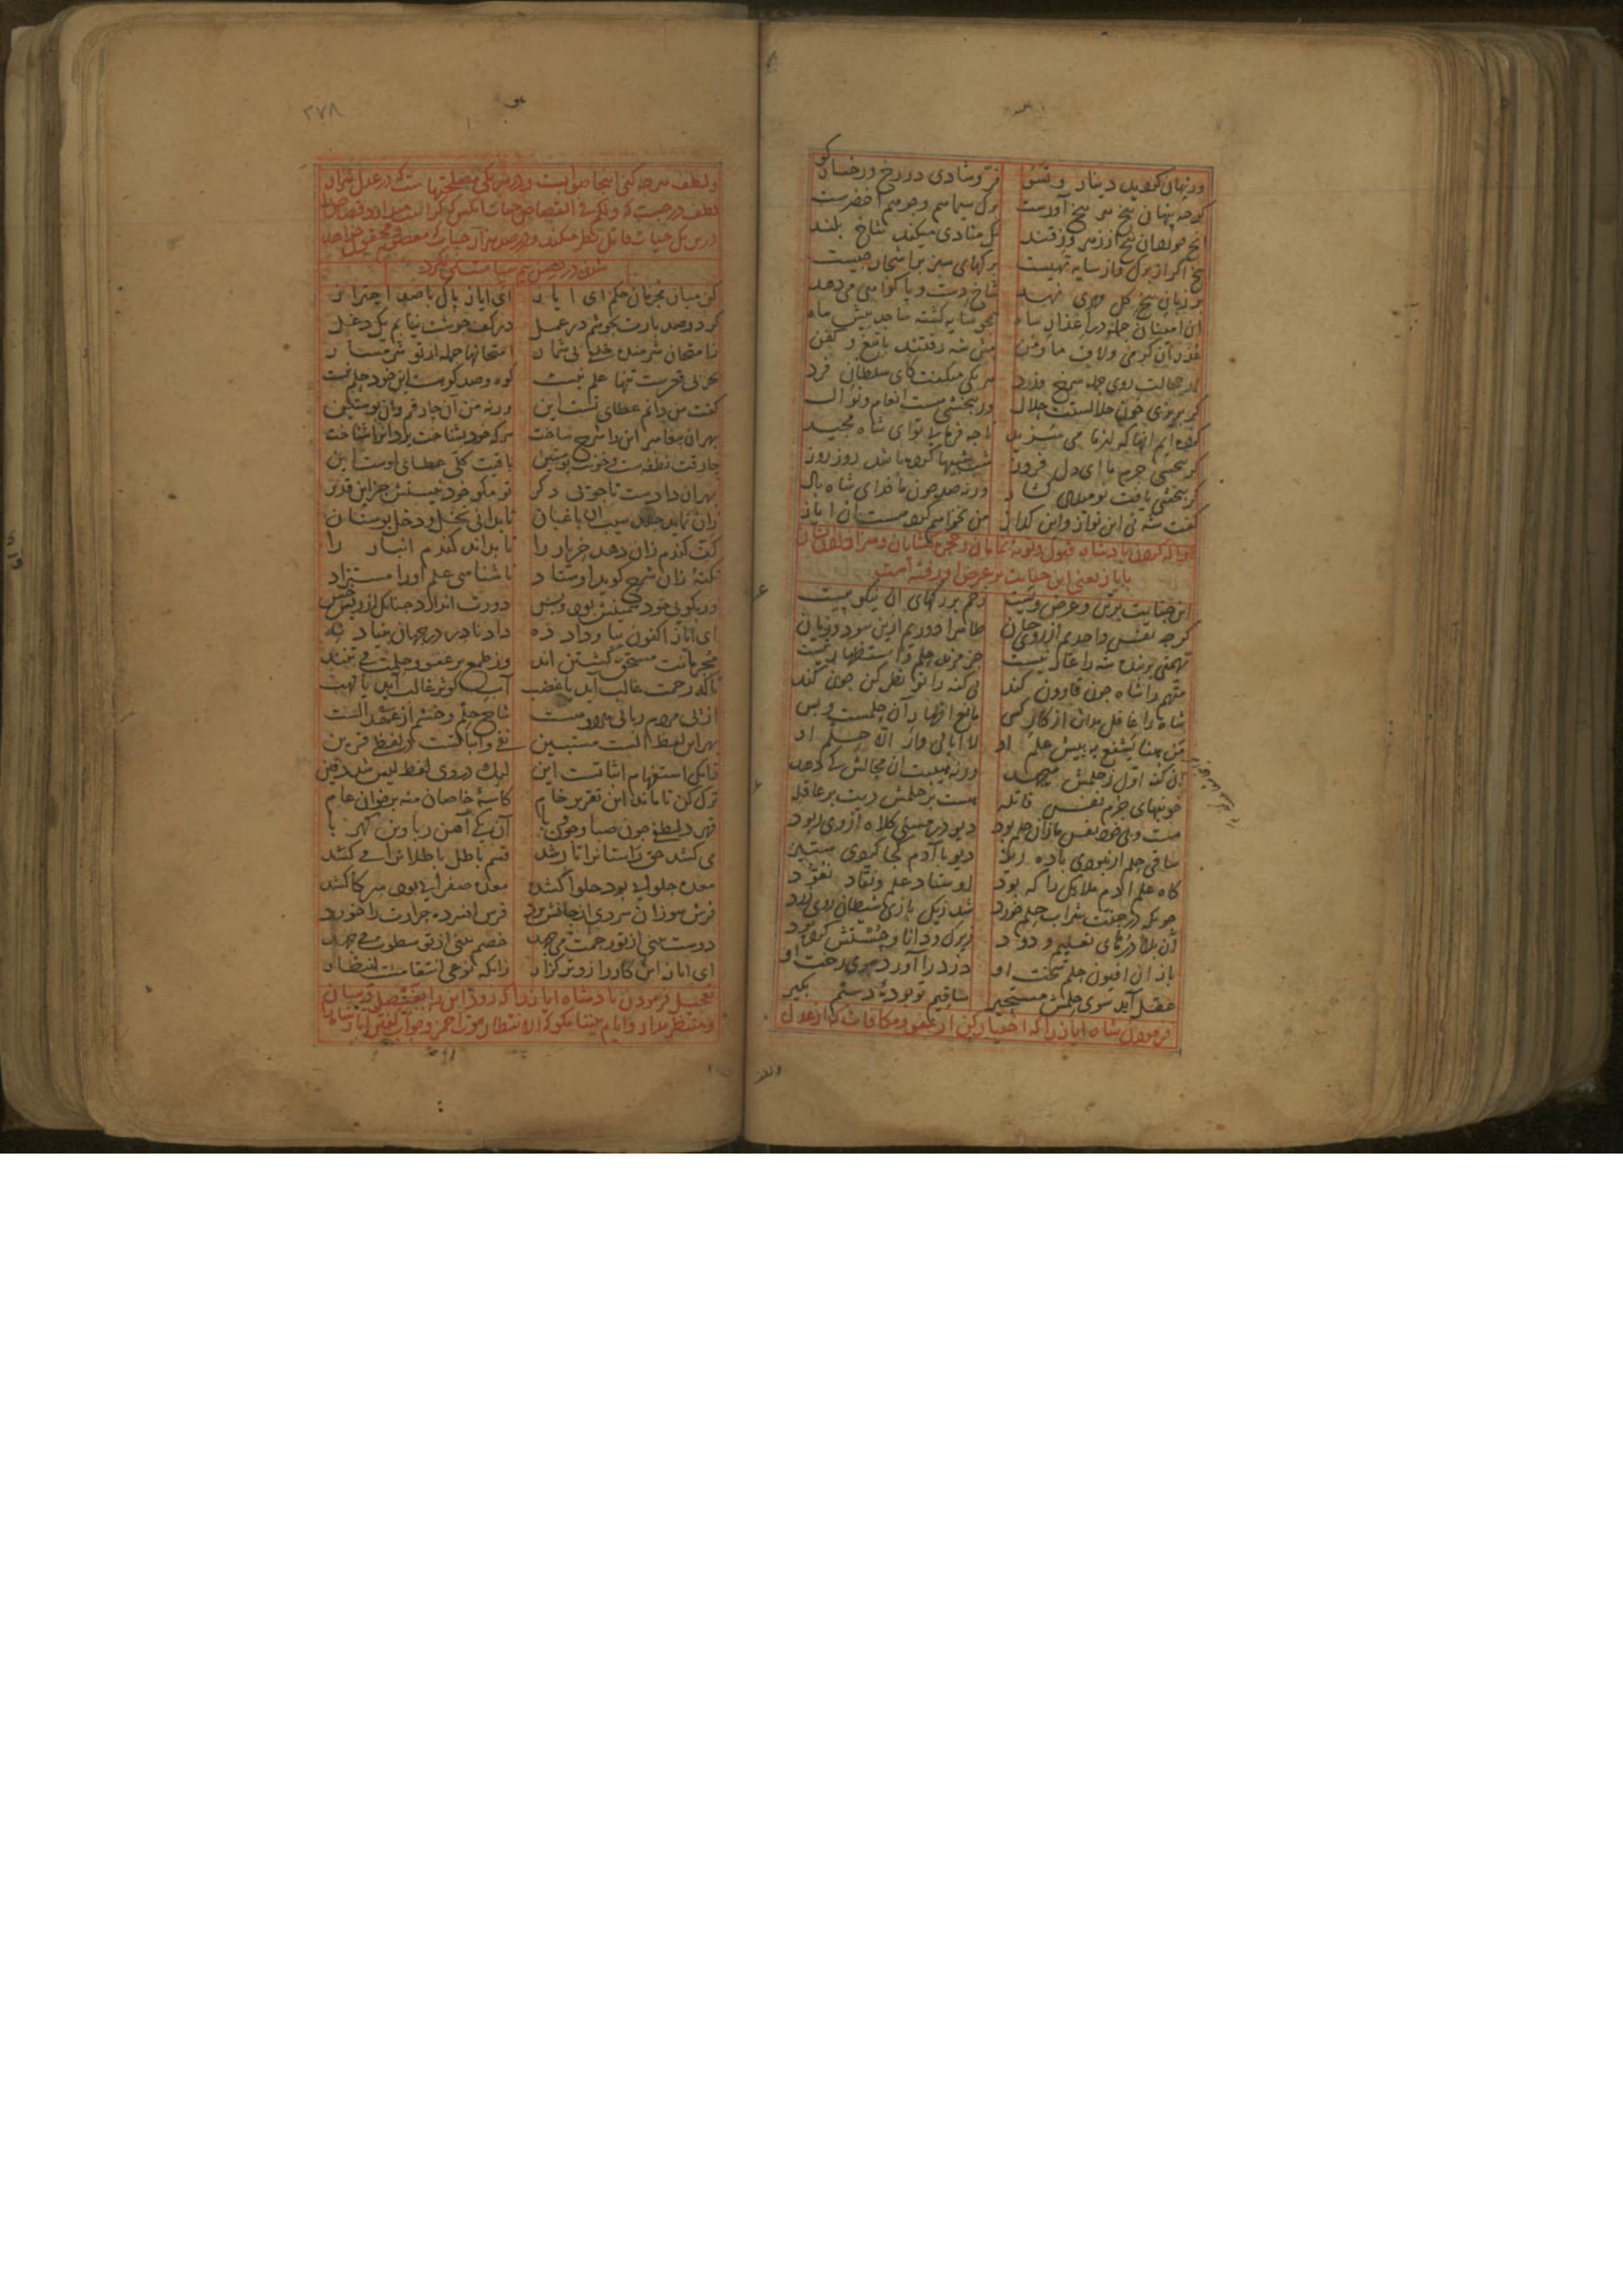 ور نهان کردید دینار و تسو فرّ و شادی در رخ و رخسار کو
کرچه پنهان بیخ هر بیخ آورست برک سیماهم وجوههم اخضرست
آنچ خوردآن بیخ از زهر و ز قند نک منادی میکند شاخ بلند
بیخ اکر از برک و از سایه تهیست برکهای سبز بر اشجار چیست
بر زبان بیخ کل مهری نهد شاخ دست و پا کواهی می دهد
آن امینان جمله در عذر آمدند همچو سایه کشته ساجد پیش ماه
عذر آن کرمی و لاف ما و من پیش شه رفتند با تیغ و کفن
از خجالت روی جمله سرخ و زرد هر یکی میکفت کای سلطان فرد
کر بریزی خون حلالستت حلال ور ببخشی هست انعام و نوال
کرده ایم آنها که از ما می سزید تا چه فرمایی تو ای شاه مجید
کر ببخشی جرم ما ای دل فروز شب شبیها کرده باشد روز روز
کر ببخشی یافت نومیدی کشاد ورنه صد چون ما فدای شاه باد
کفت شه نی این نواز و این کداز من نخواهم کرد هست آن ایاز
حواله کردن پادشاه قبول و توبهٔ نمامان و حجره کشایان و سزا دادن ایشان
با ایاز یعنی این جنایت بر عرض او رفته است
این جنایت بر تن و عرض ویست زخم بر رکهای آن نیکو پیست
کرچه نفس واحدیم از روی جان ظاهرا دوریم ازین سود و زیان
تهمتی بر بنده شه را عار نیست جز مزید حلم و استظهار نیست
متّهم را شاه چون قارون کند بی کنه را تو نظر کن چون کند
شاه را غافل مدان از کار کس مانع اظهار آن حلمست و بس
من هنا یشفع به پیش علم او لا ابالی وار الّا حلم او
آن کنه اول ز حلمش میجهد ورنه هیبت آن مجالش کی دهد
خونبهای جرم نفس قاتله هست بر حلمش دیت بر عاقله
مست و بی خود نفس ما زان حلم بود دیو در مستی کلاه از وی ربود
ساقی حلم ار نبودی باده ریز دیو با آدم کجا کردی ستیز
کاه علم آدم ملایک را که بود اوستاد علم و نقّاد نقود
چونکه در جنّت شراب حلم خورد شد ز یک بازی شیطان روی زرد
آن بلادرهای تعلیم ودود زیرک و دانا و چستش کرده بود
باز آن افیون حلم سخت او دزد را آورد سوی رخت او
عقل آید سوی حلمش مستجیر ساقیم تو بودهٔ دستم بکیر
فرمودن شاه ایاز را که اختیار کن از عفو و مکافات که از عدل
۲۷۸
و لطف هر چه کنی اینجا صوابست و در هر یکی مصلحتهاست که در عدل هزار
لطف درجست که ولکم فی القصاص حیات آنکس که کراهت میدارد قصاص را
درین یک حیات قاتل نظر میکند و در صد هزار حیات که معصوم و محقون خواهد
شدن در حصن بیم سیاست نمی نکرد
کن میان مجرمان حکم ای ایاز ای ایاز پاک با صد احتراز
کر دو صد بارت بجوشم در عمل در کف جوشت نیابم یک دغل
ز امتحان شرمنده خلقی بی شمار امتحانها جمله از تو شرمسار
بحر بی قعرست تنها علم نیست کوه و صد کوهست این خود حلم نیست
کفت من دانم عطای تست این ورنه من آن چارقم و آن پوستین
بهر آن پیغامبر این را شرح ساخت هر که خود بشناخت یزدان را شناخت
چارقت نطفه ست و خونت پوستین باقیت کلّی عطای اوست این
بهر آن دادست تا جویی دکر تو مکو خود نیستش جز این قدر
زان نماید چند سیب آن باغبان تا بدانی نخل و دخل بوستان
کف کندم زان دهد خریار را تا بداند کندم انبار را
نکتهٔ زان شرح کوید اوستاد تا شناسی علم اورا مستزاد
ور بکویی خود همینش بود و بس دورت اندازد چنانک از ریش خس
ای ایاز اکنون بیا و داد ده داد نادر در جهان بنیاد نه
مجرمانت مستحق کشتن اند وز طمع بر عفو و حلمت می تنند
تا که رحمت غالب آید یا غضب آب کوثر غالب آید یا لهب
از پی مردم ربائی هر دو هست شاخ حلم و خشم از عهد الست
بهر این لفظ الست مستبین نفی و اثباتست در لفظی قرین
زانکه استفهام اثباتست این لیک در وی لفظ لیس شد دفین
ترک کن تا ماند این تقریر خام کاسهٔ خاصان منه بر خوان عام
قهر و لطفی چون صبا و چون وبا آن یکی آهن ربا وین کهربا
می کشد حق راستانرا تا رشد قسم باطل باطلانرا می کشد
معده حلوایی بود حلوا کشد معده صفرایی بود سرکا کشد
فرش سوزان سردی از جالش برد فرش افسرده حرارت را خورد
دوست بینی از تو رحمت می جهد خصم بینی از تو سطوت می جهد
ای ایاز این کار را زوتر کزار زانکه نوعی انتقامست انتظار
تعجیل فرمودن پادشاه ایاز را که زود این را بفیصل رسان
و منتظر مدار و ایام بیننا مکو که الانتظار موت احمر و جواب کفتن ایاز شاه را